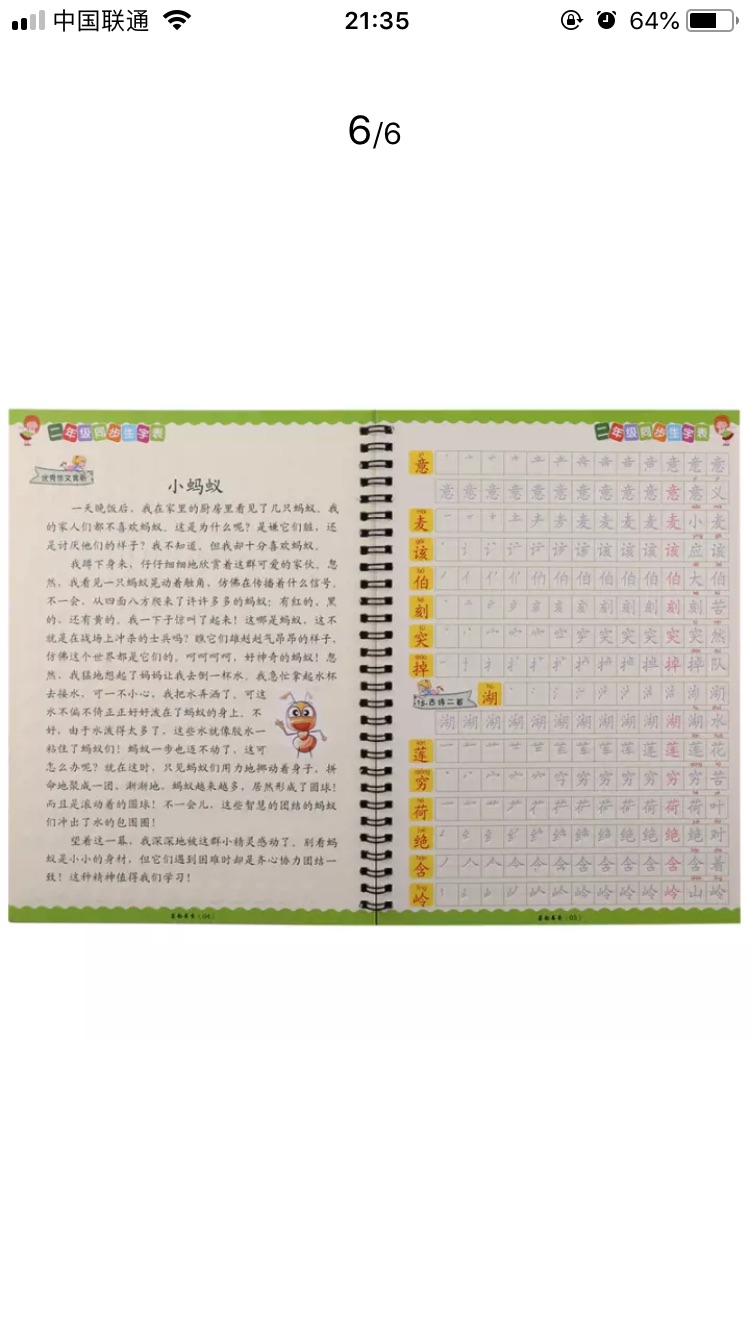 中国联通
21:35
64%
6/6
二年级同步生字表
优秀作文赏析
小蚂蚁
一天晚饭后，我在家里的厨房里看见了几只蚂蚁。我
的家人们都不喜欢蚂蚁。这是为什么呢？是嫌它们脏，还
是讨厌他们的样子？我不知道。但我却十分喜欢蚂蚁。
我蹲下身来，仔仔细细地欣赏着这群可爱的家伙。忽
然，我看见一只蚂蚁晃动着触角，仿佛在传播着什么信号。
不一会，从四面八方爬来了许许多多的蚂蚁：有红的、黑
的、还有黄的。我一下子惊叫了起来！这哪是蚂蚁，这不
就是在战场上冲杀的士兵吗？瞧它们雄赳赳气昂昂的样子，
仿佛这个世界都是它们的。呵呵呵呵，好神奇的蚂蚁！忽
然，我猛地想起了妈妈让我去倒一杯水。我急忙拿起水杯
去接水，可一不小心，我把水弄洒了。可这
水不偏不倚正正好好泼在了蚂蚁的身上。不
好，由于水泼得太多了，这些水就像胶水一
粘住了蚂蚁们！蚂蚁一步也迈不动了，这可
怎么办呢？就在这时，只见蚂蚁们用力地挪动着身子，拼
命地聚成一团。渐渐地，蚂蚁越来越多，居然形成了圆球！
而且是滚动着的圆球！不一会儿，这些智慧的团结的蚂蚁
们冲出了水的包围圈！
望着这一幕，我深深地被这群小精灵感动了。别看蚂
蚁是小小的身材，但它们遇到困难时却是齐心协力团结一
致！这种精神值得我们学习！
(04)
二年级同步生字表
意 意 意 意
意 意 意 意 意 意 意 意 意 意 意 义
麦 麦 麦 麦 麦 麦 小 麦
该 该 该 该 该 应 该
伯 伯 伯 伯 伯 伯 大 伯
刻 刻 刻 刻 刻 刻 苦
突 突 突 突 突 突 然
掉 掉 掉 掉 掉 队
18.古诗二首
湖
湖 湖 湖 湖 湖 湖 湖 湖 湖 湖 湖 水
莲 莲 莲 莲 莲 花
穷 穷 穷 穷 穷 穷 穷 苦
荷 荷 荷 荷 荷 叶
绝 绝 绝 绝 绝 绝 对
含 含 含 含 含 含 含 着
岭 岭 岭 岭 岭 岭 山 岭
(05)